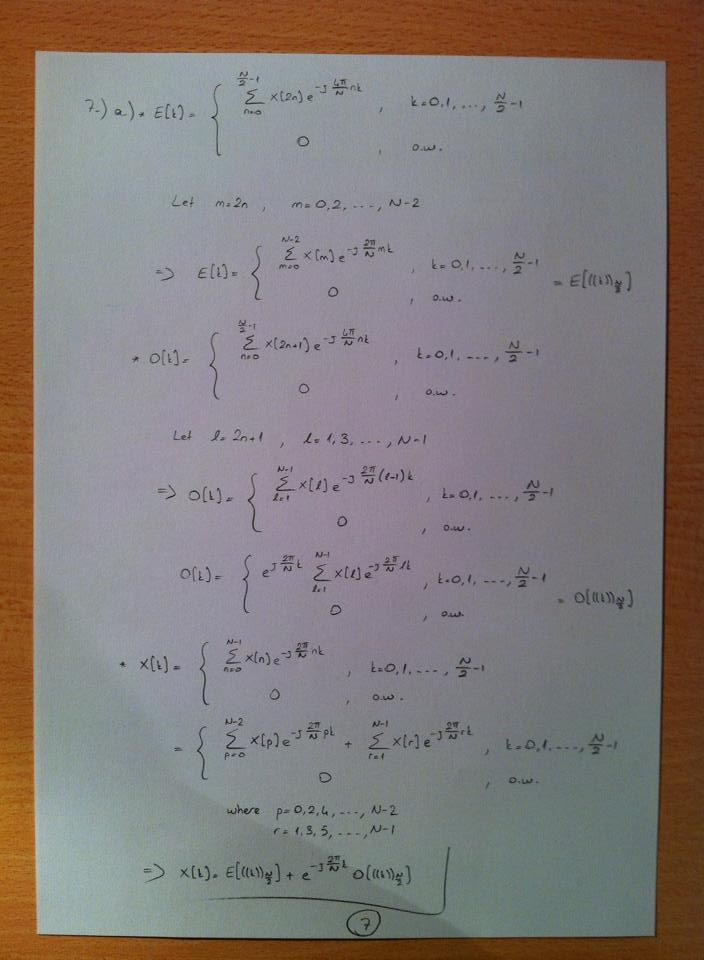 7-) a) * E[k] = { \sum_{n=0}^{\frac{N}{2}-1} x[2n] e^{-j\frac{4\pi}{N}nk} , k=0,1, ..., \frac{N}{2}-1
0 , o.w.
Let m=2n , m=0,2, ..., N-2
=> E[k] = { \sum_{m=0}^{N-2} x[m] e^{-j\frac{2\pi}{N}mk} , k=0,1, ..., \frac{N}{2}-1 = E[((k))_{\frac{N}{2}}]
0 , o.w.
* O[k] = { \sum_{n=0}^{\frac{N}{2}-1} x[2n+1] e^{-j\frac{4\pi}{N}nk} , k=0,1, ..., \frac{N}{2}-1
0 , o.w.
Let l=2n+1 , l=1,3, ..., N-1
=> O[k] = { \sum_{l=1}^{N-1} x[l] e^{-j\frac{2\pi}{N}(l-1)k} , k=0,1, ..., \frac{N}{2}-1
0 , o.w.
O[k] = { e^{j\frac{2\pi}{N}k} \sum_{l=1}^{N-1} x[l] e^{-j\frac{2\pi}{N}lk} , k=0,1, ..., \frac{N}{2}-1 = O[((k))_{\frac{N}{2}}]
0 , o.w.
* X[k] = { \sum_{n=0}^{N-1} x[n] e^{-j\frac{2\pi}{N}nk} , k=0,1, ..., \frac{N}{2}-1
0 , o.w.
= { \sum_{p=0}^{N-2} x[p] e^{-j\frac{2\pi}{N}pk} + \sum_{r=1}^{N-1} x[r] e^{-j\frac{2\pi}{N}rk} , k=0,1, ..., \frac{N}{2}-1
0 , o.w.
where p=0,2,4, ..., N-2
r=1,3,5, ..., N-1
=> X[k] = E[((k))_{\frac{N}{2}}] + e^{-j\frac{2\pi}{N}k} O[((k))_{\frac{N}{2}}]
7